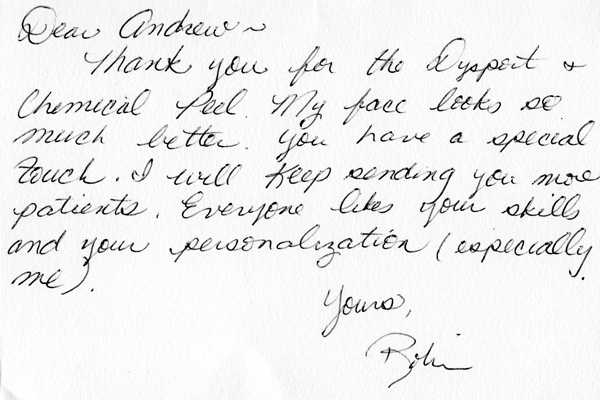 Dear Andrew~
Thank you for the Dysport &
Chemical Peel. My face looks so
much better. You have a special
touch. I will keep sending you more
patients. Everyone likes your skills
and your personalization (especially
me).
Yours,
Robin